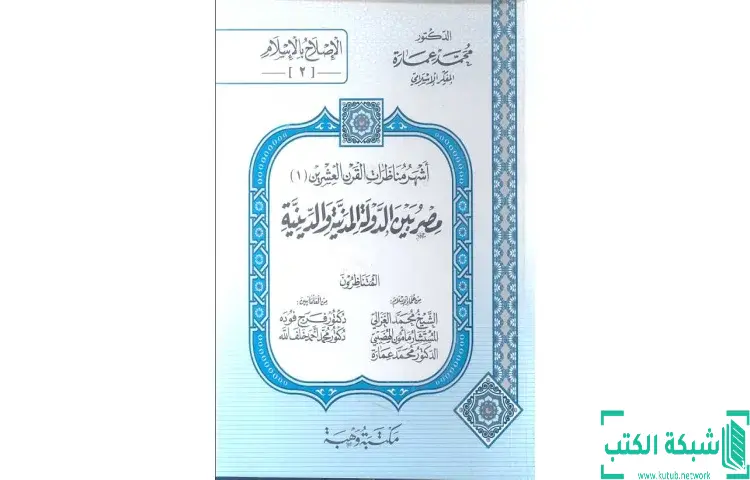 الدكتور
محمد عمارة
المفكر الإسلامي
الإصلاح بالإسلام
[ ٢ ]
أشهر مناظرات القرن العشرين (١)
مصر بين الدولة المدنية والدينية
المتناظرون
من علماء الإسلام:
الشيخ محمد الغزالي
المستشار مأمون الهضيبي
الدكتور محمد عمارة
من العلمانيين:
دكتور فرج فوده
دكتور محمد أحمد خلف الله
مكتبة وهبة
شبكة الكتب
www.kutub.network